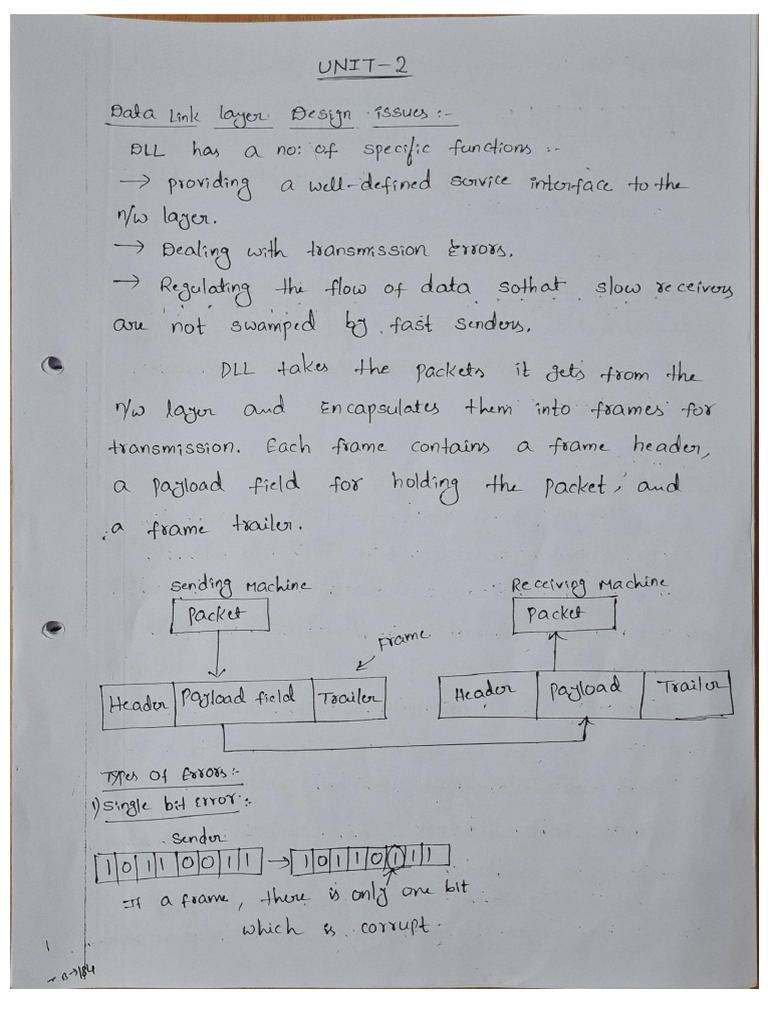 UNIT-2
Data Link layer Design issues :-
DLL has a no: of specific functions :-
→ providing a well-defined service interface to the
n/w layer.
→ Dealing with transmission Errors.
→ Regulating the flow of data sothat slow receivers
are not swamped by fast senders.
DLL takes the packets it gets from the
n/w layer and Encapsulates them into frames for
transmission. Each frame contains a frame header,
a payload field for holding the packet, and
a frame trailer.
Sending Machine Receiving Machine
Packet Packet
Frame
Header Payload field Trailer Header Payload Trailer
Types of Errors:-
1) Single bit Error:-
Sender
1 0 1 1 0 0 1 1 → 1 0 1 1 0 1 1 1
If a frame, there is only one bit
which is corrupt.
1